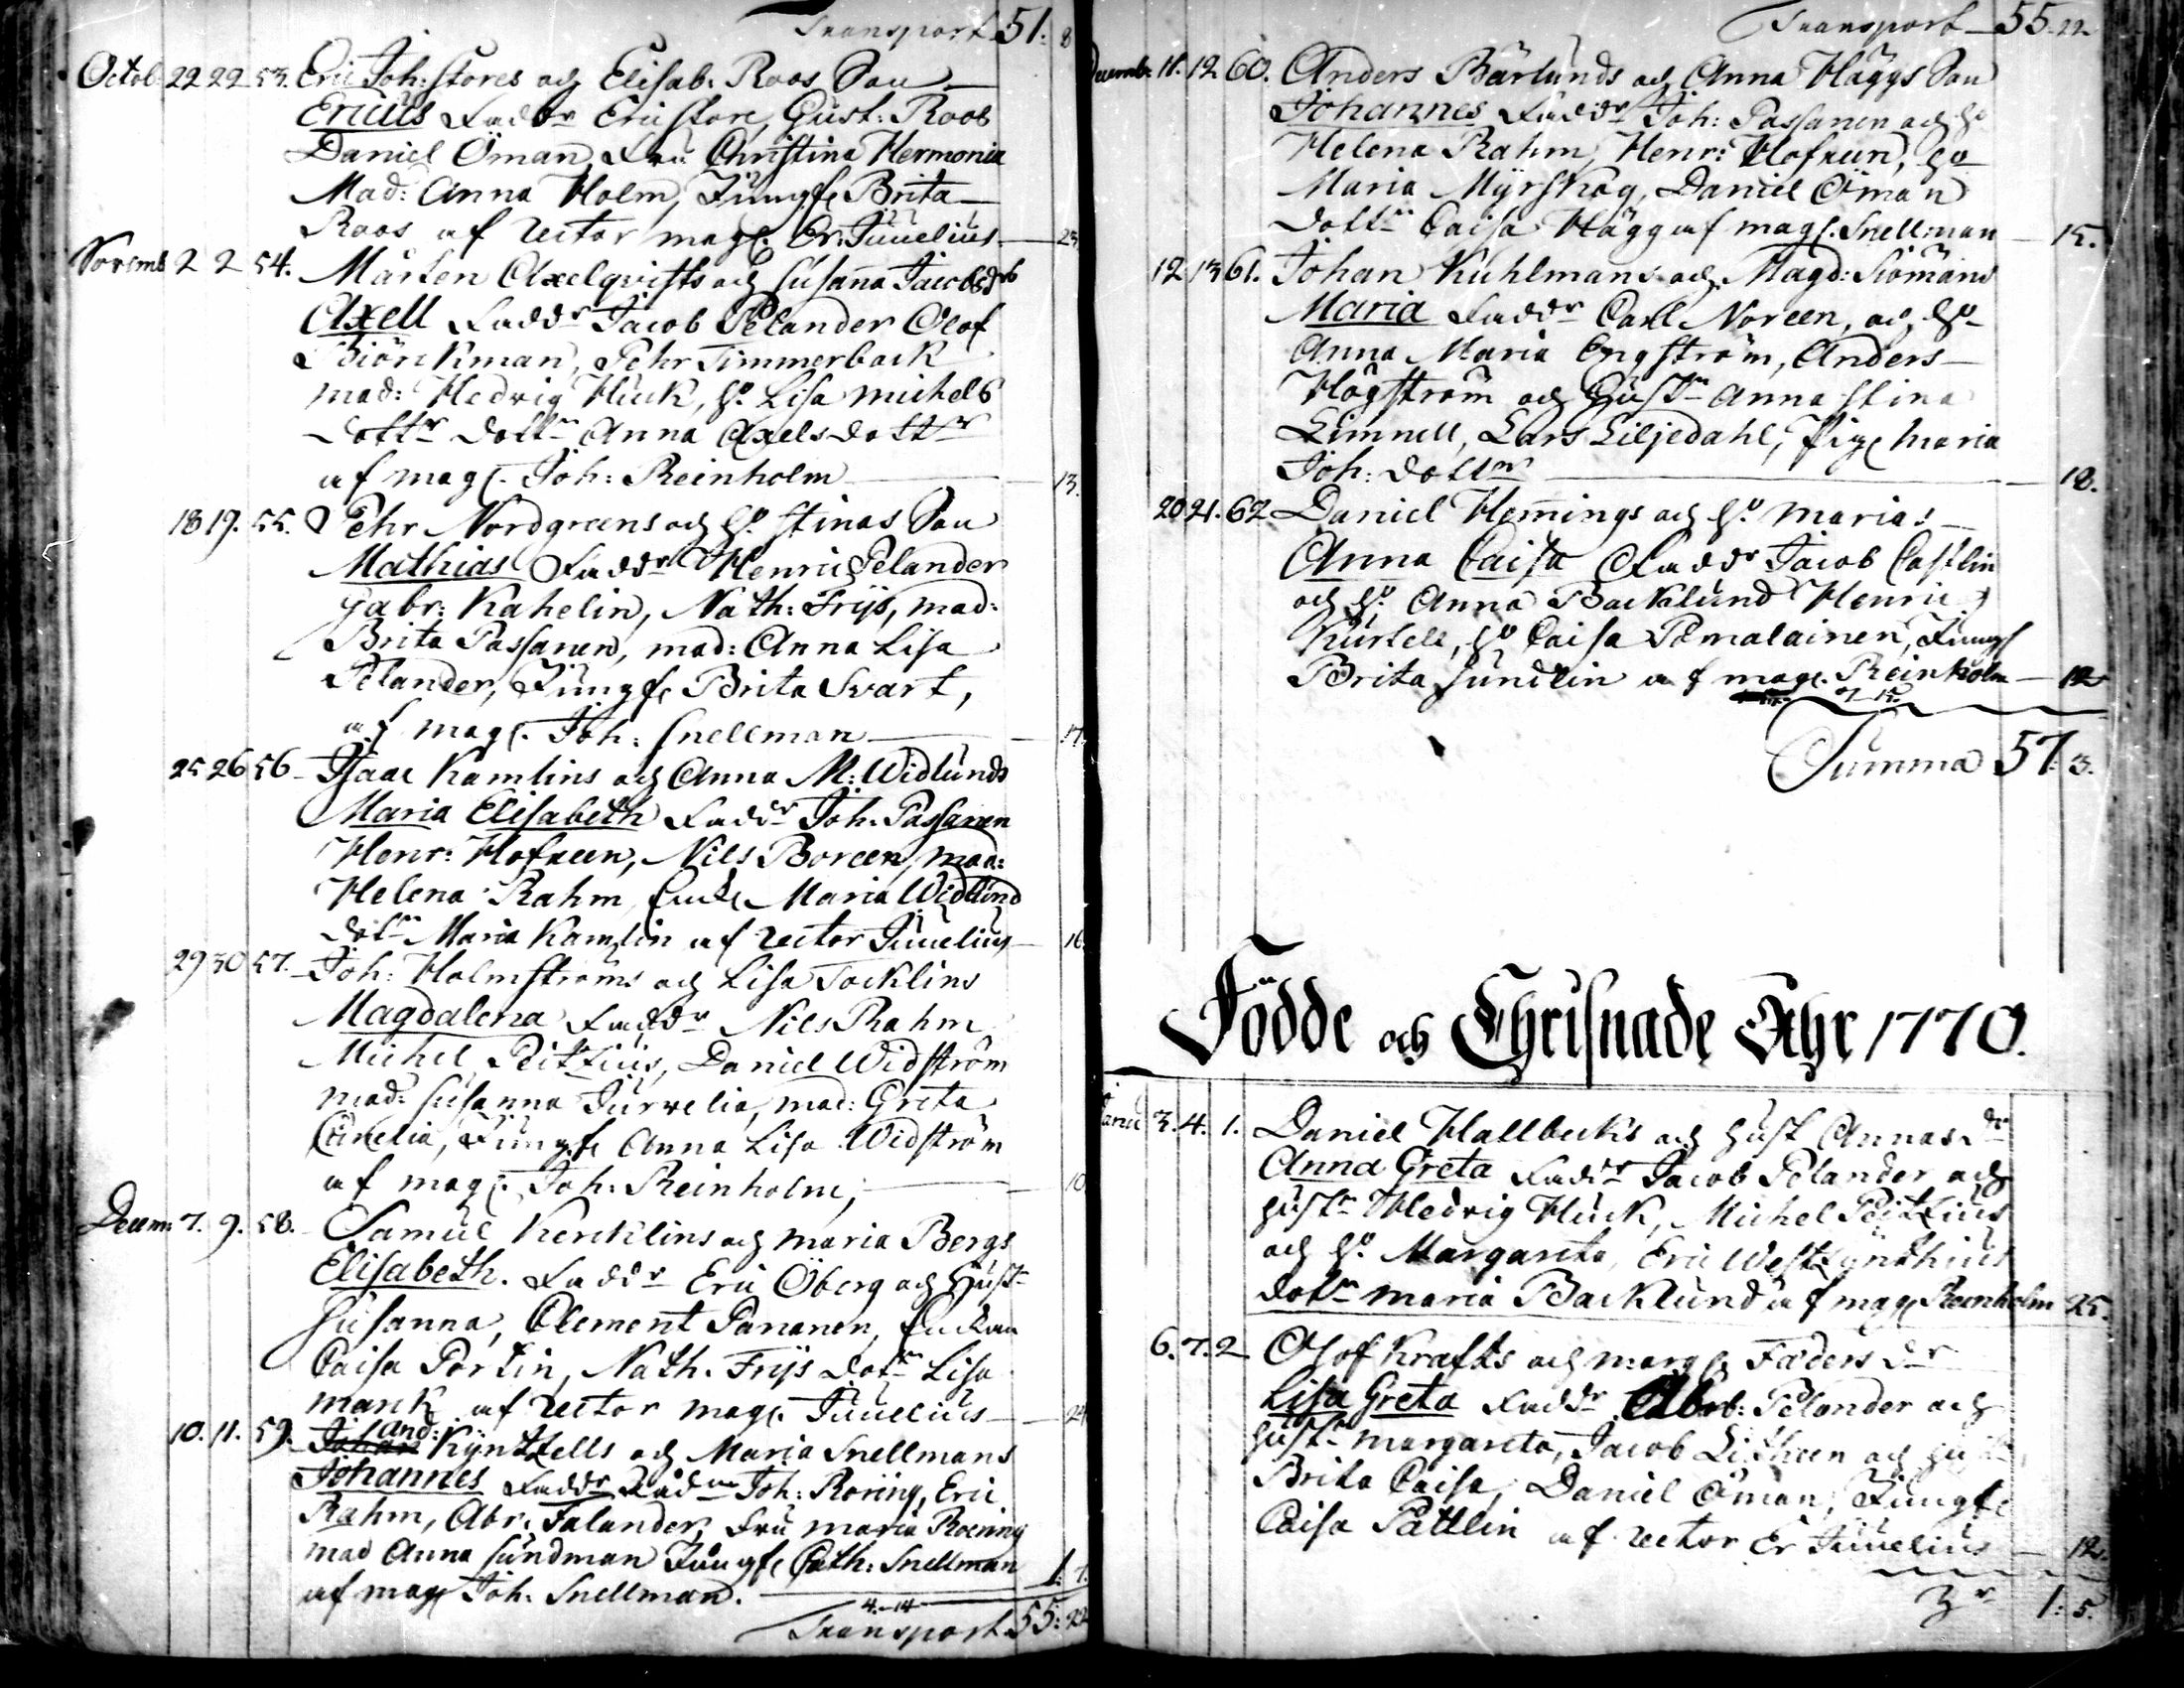 Transport 51: 8
Octob. 22 22 53. Eric Joh: stores och Elisab: Roos Son
Ericus Faddr Eric store, Gust: Roos
Daniel Öman, Fru Christina Hermonia
Mad: Anna Holm, Jungfr Brita
Roos af rector mag. Er: Juvelius 23
Novemb 2 2 54. Mårten Axelqvists och Susanna Jacobsdrs
Axell Faddr Jacob Pelander Olof
Biörckman, Pehr Timmerback
mad: Hedvig Huck, h. Lisa michels
dottr dottr Anna Axelsdottr
af mag. Joh: Reinholm 13.
18 19. 55. Pehr Nordgreens och h. stinas Son
Mathias Faddr Henric Pelander
Gabr: Kahelin, Nath: Frijs, mad:
Brita Passanen, mad: Anna Lisa
Pelander, Jungfr Brita Svart,
af mag. Joh: Snellman 17.
25 26 56. Isaac Kamlins och Anna M: Widlunds
Maria Elisabeth Faddr Joh: Passanen
Henr: Hofreen, Nils Boreen, mad:
Helena Rahm, Enk Maria Widlund
dotr Maria Kamlin af rector Juvelius 16.
29 30 57. Joh: Holmströms och Lisa Tocklins
Magdalena Faddr Nils Rahm
Michel Peitzius, Daniel Widström
mad: Susanna Jurvelia, mad: Greta
Cunelia, Jungfr Anna Lisa Widström
af mag. Joh: Reinholm, 10
Decem: 7. 9. 58. Samuel Kercklins och maria Bergs
Elisabeth. Faddr Eric Öberg och Hustr
Susanna, Clement Pananen, Enkan
Caisa Portin, Nath. Frijs dotr Lisa
mank af rector mag. Juvelius 24
10. 11. 59. Johan And: Kyntzells och Maria Snellmans
Johannes Faddr Rådm Joh: Roring, Eric
Rahm, Abr: Falander, Fru maria Roening
mad Anna Sundman Jungfr Cath: Snellman 1: 7.
af mag Joh. Snellman.
4.-14
Transport 55: 22
Transport 55: 22
Decemb: 11. 12 60. Anders Bärlunds och Anna Häggs Son
Johannes Faddr Joh: Passanen och h.
Helena Rahm, Henr: Hofreen, h.
Maria Myrskog, Daniel Öman
dottr Caisa Hägg af mag. Snellman 15.
12 13 61. Johan Kuhlmans och Magd: Siömans
Maria Faddr Carl Noreen, och h.
Anna Maria Engström, Anders
Högström och Hustr Anna Stina
Limnell, Lars Liljedahl, Pig. Maria
Joh: dottr 18.
20 21. 62 Daniel Hemmings och h. marias
Anna Caisa Faddr Jacob Castlin
och h. Anna Backlund Henric
Kurtell, h. Caisa Pomalainen, Jungf
Brita Sundlin af mag. Reinholm 12
Summa 57: 3.
Födde och Christnade Åhr 1770.
Januari 3. 4. 1. Daniel Hallbecks och Hust Annas dr
Anna Greta Faddr Jacob Pelander och
Hustr Hedvig Huck, Michel Peitzius
och h. Margareta, Eric Westzynthius
dotr maria Backlund af mag Reinholm 25.
6. 7. 2 Olof Krafts och marg. Fæders dr
Lisa Greta Faddr Abrb: Pelander och
Hustr margareta, Jacob Litheen och Hustr
Brita Caisa, Daniel Öman, Jungfr
Caisa Pättlin af rector Er Juvelius 12.
1: 5.